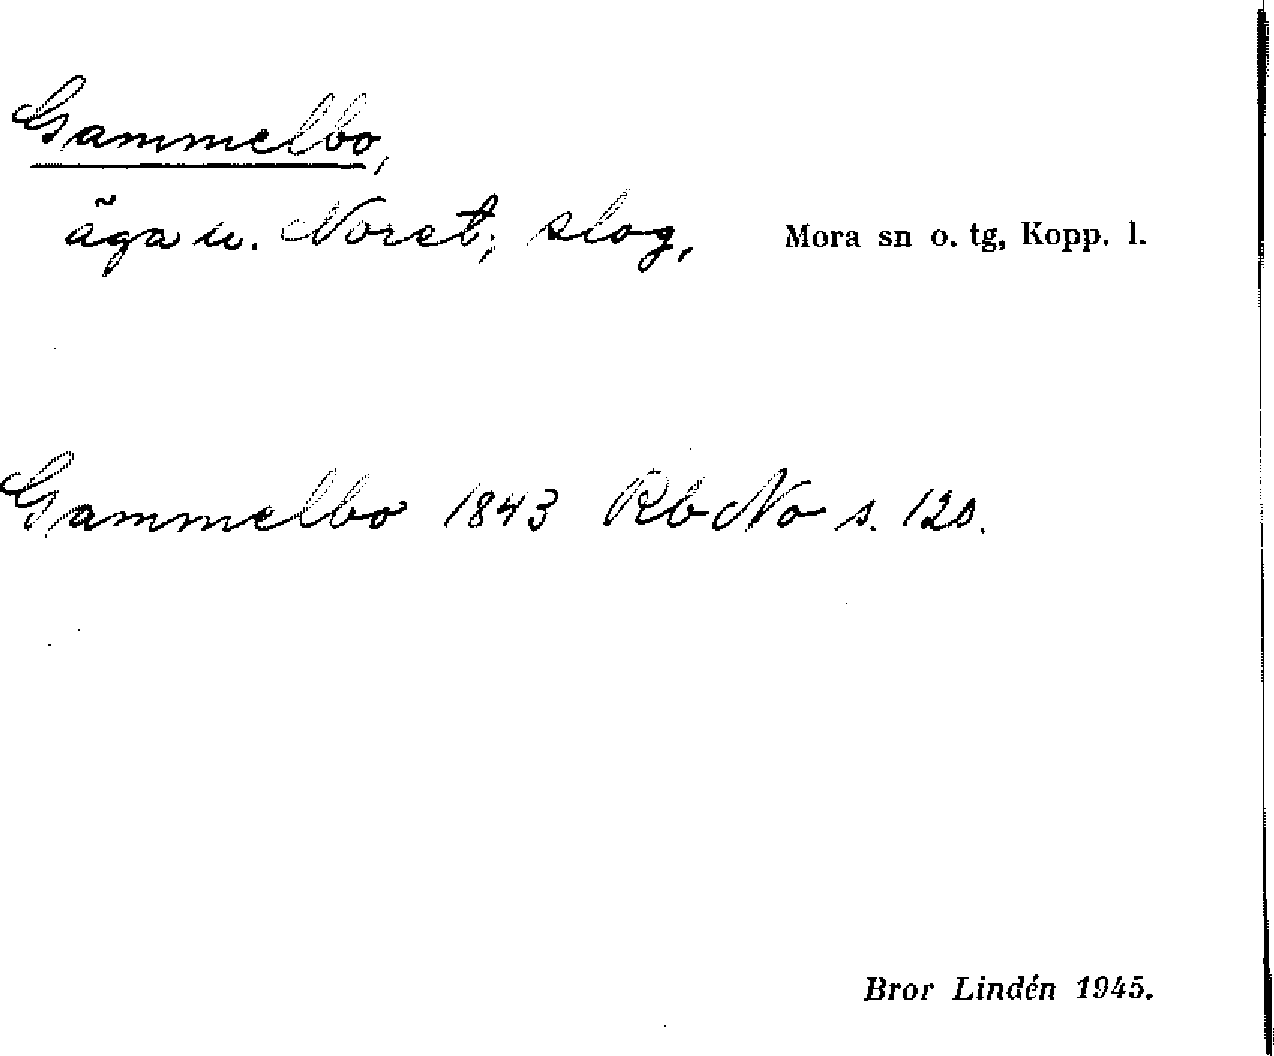 Gammelbo,
äga u. Noret; slog, Mora sn o. tg, Kopp. l.
Gammelbo 1843 Rb No s. 120.
Bror Lindén 1945.